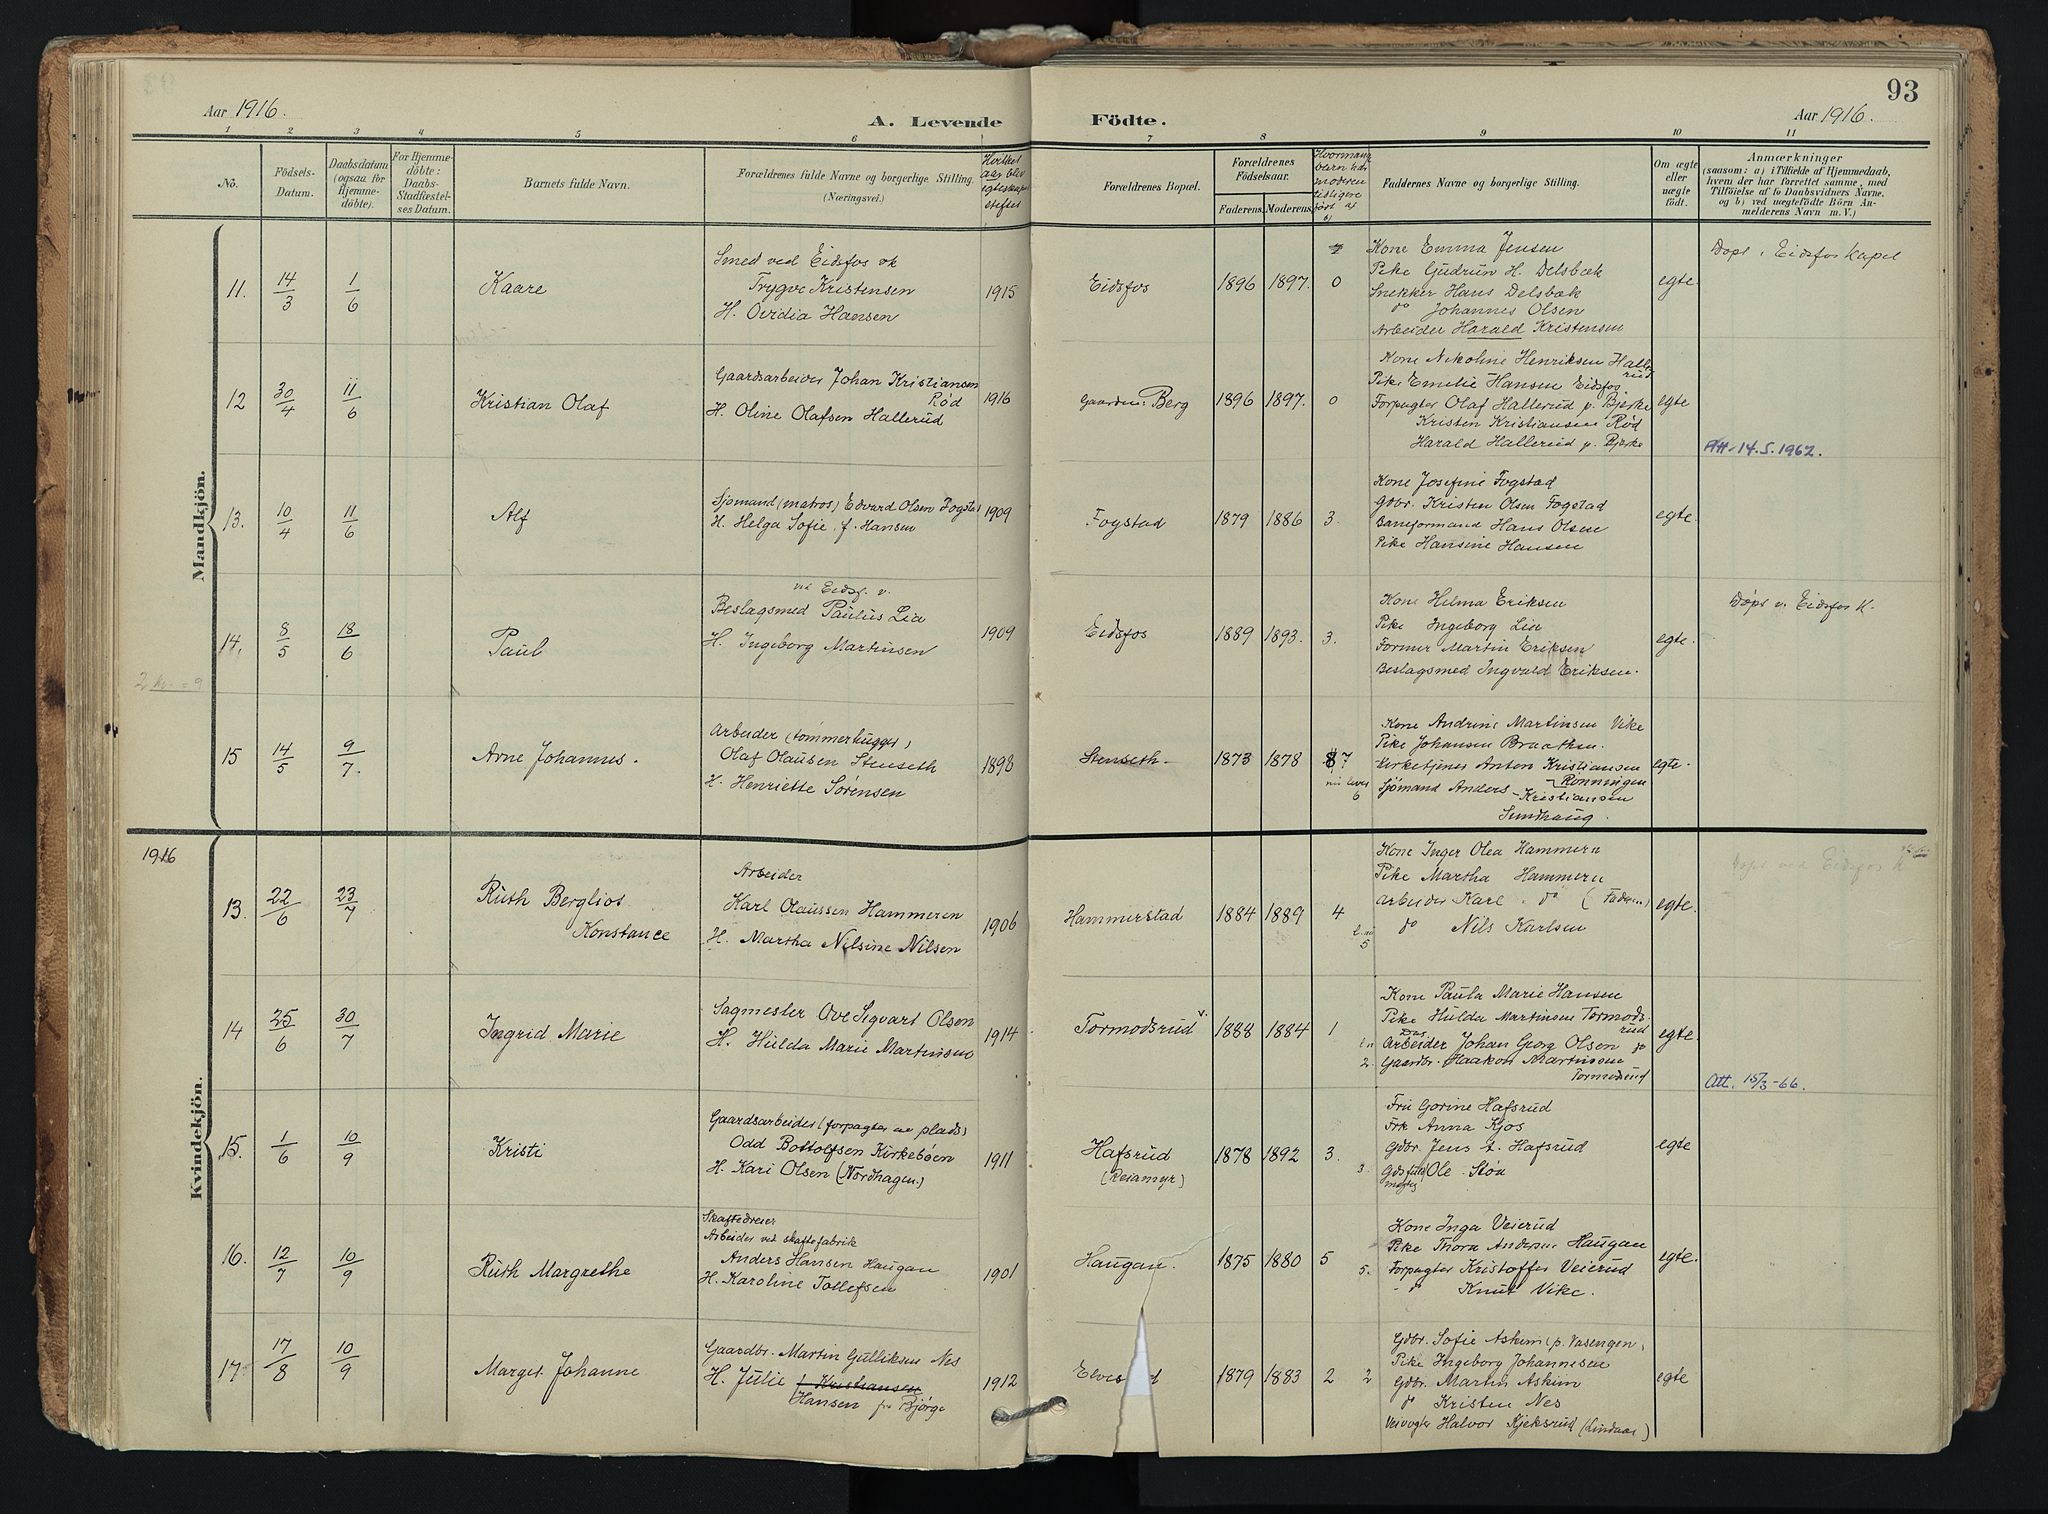 93
Aar 1916.
A. Levende Födte.
Aar 1916.
1 2 3 4 5 6 7 8 9 10 11
No.
Födsels-
Datum.
Daabsdatum
(ogsaa for
Hjemme-
döbte).
For Hjemme-
döbte:
Daabs-
Stadfæstel-
ses Datum.
Barnets fulde Navn.
Forældrenes fulde Navne og borgerlige Stilling.
(Næringsvei.)
Hvilket
aar blev
egteskapet
stiftet
Forældrenes Bopæl.
Forældrenes
Födselsaar.
Faderens.
Moderens.
Hvormange
børn har
moderen
tidligere
født
Faddernes Navne og borgerlige Stilling.
Om ægte
eller
uægte
födt.
Anmærkninger
(saasom: a) i Tilfælde af Hjemmedaab,
hvem der har forrettet samme, med
Tilföielse af to Daabsvidners Navne.
og b) ved uægtefödte Börn An-
melderens Navn m. V.)
Mandkjön.
11. 14/3 1/6 Kaare
Smed ved Eidsfos vk
Trygve Kristensen
H. Ovidia Hansen
1915 Eidsfos 1896 1897. 0
Kone Emma Jensen
Pike Gudrun H. Delsbæk
Snekker Hans Delsbæk
do Johannes Olsen
Arbeider Harald Kristensen
egte.
Døpt i Eidsfos Kapel
12 30/4 11/6 Kristian Olaf
Gaardsarbeider Johan Kristiansen
Rød
H. Oline Olafsen Hallerud
1916 Gaarden Berg 1896 1897. 0
Kone Nikoline Henriksen Halle
rud
Pike Emelie Hansen Eidsfos
Forpagter Olaf Hallerud p. Bjerke
Kristen Kristiansen Rød
Harald Hallerud p. Bjerke
egte
Att. 14.5.1962.
13. 10/4 11/6 Alf
Sjømand (matros) Edvard Olsen Fogstad
H. Helga Sofie f. Hansen
1909 Fogstad 1879 1886 3.
Kone Josefine Fogstad
Gdbr. Kristen Olsen Fogstad
Baneformand Hans Olsen
Pike Hansine Hansen
egte.
14. 8/5 18/6 Paul
ved Eidsf. v.
Beslagsmed Paulus Lia
H. Ingeborg Martinsen
1909 Eidsfos 1889 1893. 3.
Kone Hilma Eriksen
Pike Ingeborg Lia
Former Martin Eriksen
Beslagsmed Ingvald Eriksen.
egte.
Døpt v. Eidsfos K.
15 14/5 9/7. Arne Johannes.
Arbeider (tømmerhugger)
Olaf Olausen Stenseth
H. Henriette Sørensen
1898 Stenseth. 1873 1878 8 7
nu lever
6
Kone Andrine Martinsen Vike
Pike Johansen Braathen.
Kirketjener Anton Kristiansen
Rønningen
Sjømand Anders Kristiansen
Sundhaug.
egte.
1916
Kvindekjön.
13. 22/6 23/7 Ruth Bergliot
Konstance
Arbeider
Karl Olaussen Hammeren
H. Martha Nilsine Nilsen
1906 Hammerstad 1884 1889 4
5
Kone Inger Olea Hammern
Pike Martha Hammern
Arbeider Karl do (Faderen)
do Nils Karlsen
egte.
Døpt ved Eidsfos K
14 25/6 30/7 Ingrid Marie
Sagmester Ove Sigvart Olsen
H. Hulda Marie Martinsen
1914 Tormodsrud v. 1888 1884 1
2.
Kone Paula Marie Hansen
Pike Hulda Martinsen Tormods-
rud
Arbeider Johan Georg Olsen do
Gaardbr. Haakon Martinsen
Tormodsrud
egte.
Att. 15/3-66.
15. 1/6 10/9 Kristi
Gaardsarbeider (forpagter av plads)
Odd Bottolfsen Kirkebøen
H. Kari Olsen (Nordhagen.)
1911 Hafsrud
(Reiamyr)
1878 1892 3.
3.
Fru Gorine Hafsrud
Frk Anna Kjos
Gdbr. Jens A. Hafsrud
Gdsfuld
mægtig Ole Stoa
egte
16. 12/7 10/9 Ruth Margrethe
Skaftedreier
Arbeider ved skaftefabrik
Anders Hansen Haugan
H. Karoline Tollefsen
1901 Haugan. 1875 1880 5
5.
Kone Inga Veierud
Pike Thora Andersen Haugan
Forpagter Kristoffer Veierud
do Knut Vike.
egte.
17. 17/8 10/9 Marget Johanne
Gaardbr. Martin Gulliksen Nes
H. Julie f. Kristiansen
Hansen fra Bjørge
1912 1879 1883 2 2
Gdbr. Sofie Askim (p. Vasengen)
Pike Ingeborg Johannesen
Gdbr. Martin Askim
do Kristen Nes
Veivogter Halvor Kjeksrud (Lindaas)
egte